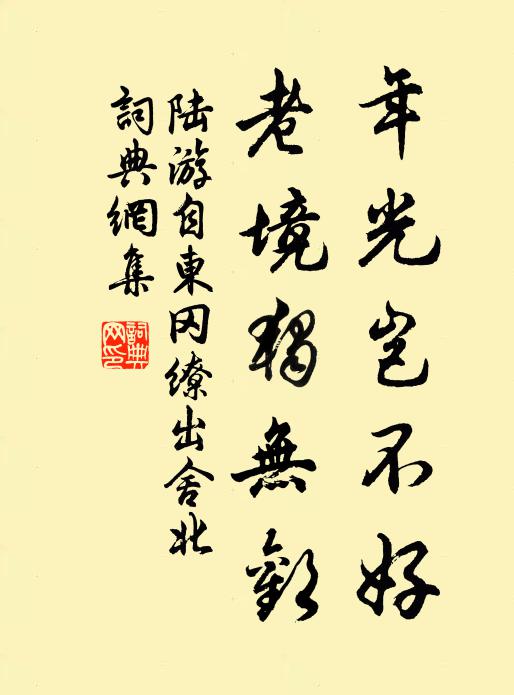 年光豈不好
老境獨無歡
陸游自東岡繚出舍北
詞典網集
詞典網印